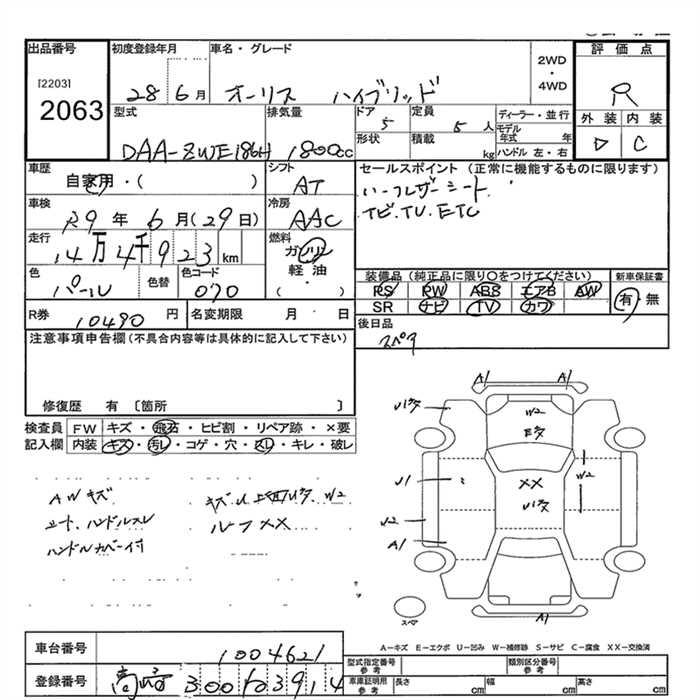 出品番号 初度登録年月 車名・グレード 評価点
[2203] 2WD
・
4WD
2063 28 6月 オーリス ハイブリッド R
型式 排気量 ドア 定員 ディーラー・並行 外装 内装
5 5人 モデル年式 年
DAA-ZWE186H 1800cc 形状 積載 kg ハンドル 左・右 D C
車歴 シフト セールスポイント (正常に機能するものに限ります)
自家用・( ) AT ハーフレザーシート
車検 冷房 ナビ.TV.ETC
R9年 6月(29日) AAC
走行 燃料
14万4千923km ガソリン
色 色替 色コード 軽油 装備品(純正品に限り○をつけてください) 新車保証書
パール 070 ( ) PS PW ABS エアB AW 有・無
R券 10490円 名変期限 月 日 SR ナビ TV カワ
注意事項申告欄(不具合内容等は具体的に記入して下さい) 後日品
スペア
修復歴 有 〔箇所 〕
検査員 FW キズ・飛石・ヒビ割・リペア跡・×要
記入欄 内装 キズ・汚レ・コゲ・穴・スレ・キレ・破レ
A1 A1
W2
U1
XX
W2
U1
W2
A1
AWキズ W2
シート、ハンドルスレ ルーフXX
ハンドルカバー付
スペア A1
A-キズ E-エクボ U-凹み W-補修跡 S-サビ C-腐食 XX-交換済
車台番号 1004621 型式指定番号 参考 類別区分番号 参考
登録番号 高崎 300 車庫証明用 参考 長さ cm 幅 cm 高さ cm